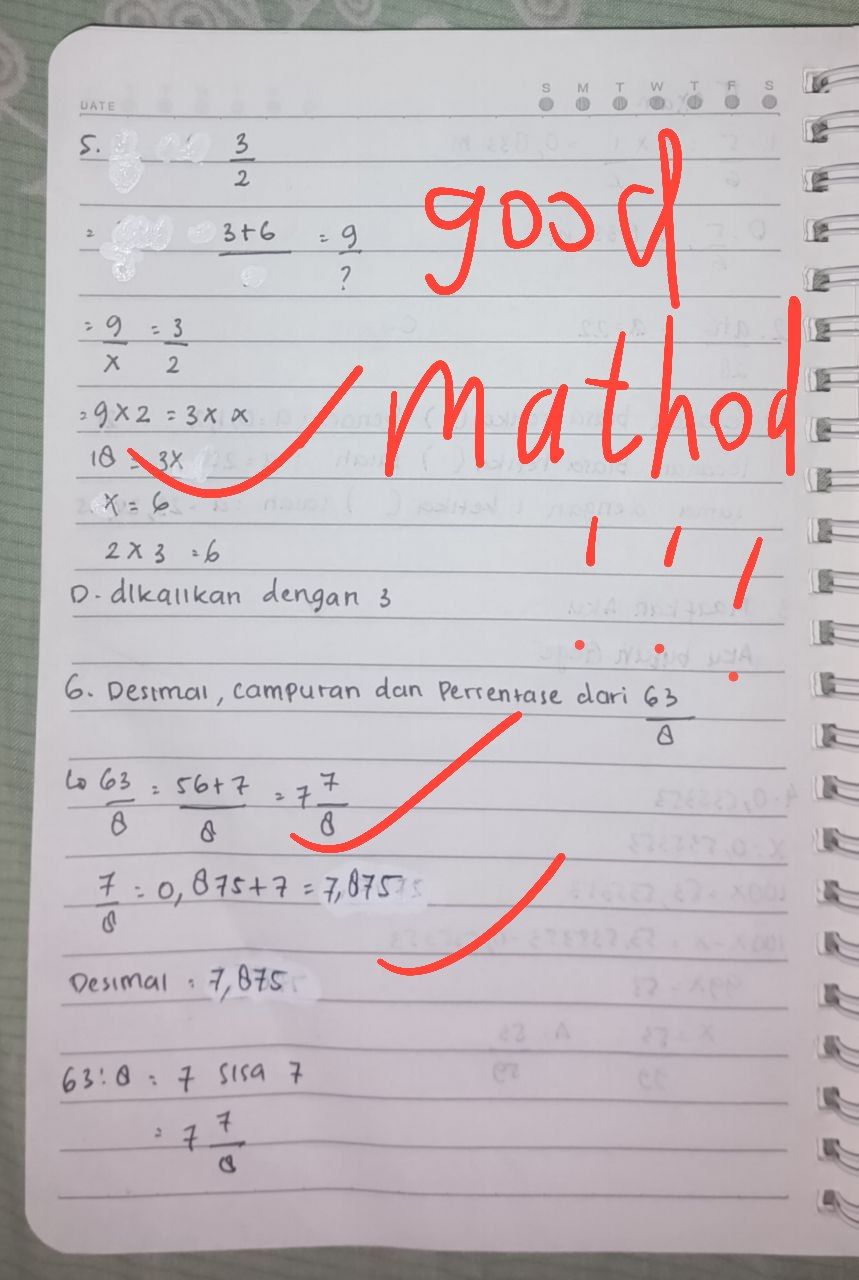 DATE
S M T W T F S
5. 3/2
= 3+6 = 9/?
= 9/x = 3/2
= 9 x 2 = 3 x x
18 = 3x
x = 6
2 x 3 = 6
D. dikalikan dengan 3
good
mathod
! ! !
6. Desimal, campuran dan Persentase dari 63/8
↳ 63/8 = 56+7/8 = 7 7/8
7/8 = 0,875+7 = 7,875
Desimal = 7,875
63 : 8 = 7 sisa 7
= 7 7/8